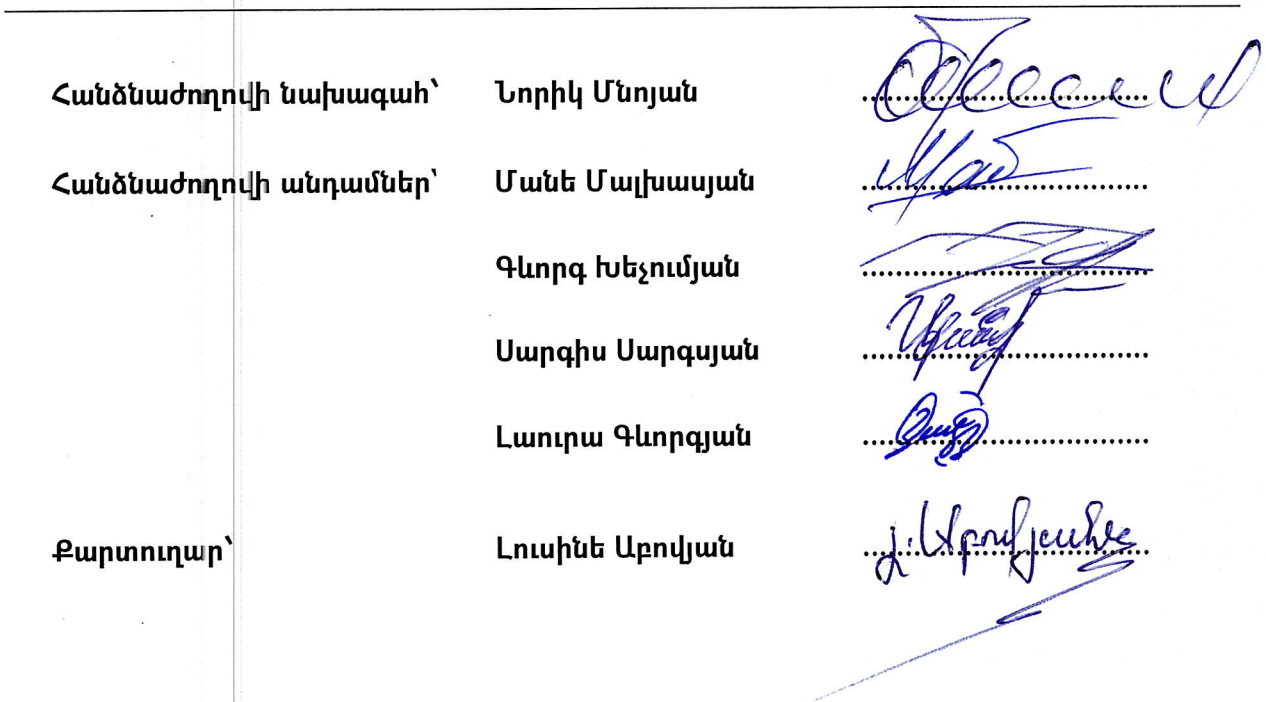 Հանձնաժողովի նախագահ՝ Նորիկ Մնոյան
Հանձնաժողովի անդամներ՝ Մանե Մալխասյան
Գևորգ Խեչումյան
Սարգիս Սարգսյան
Լաուրա Գևորգյան
Քարտուղար՝ Լուսինե Աբովյան